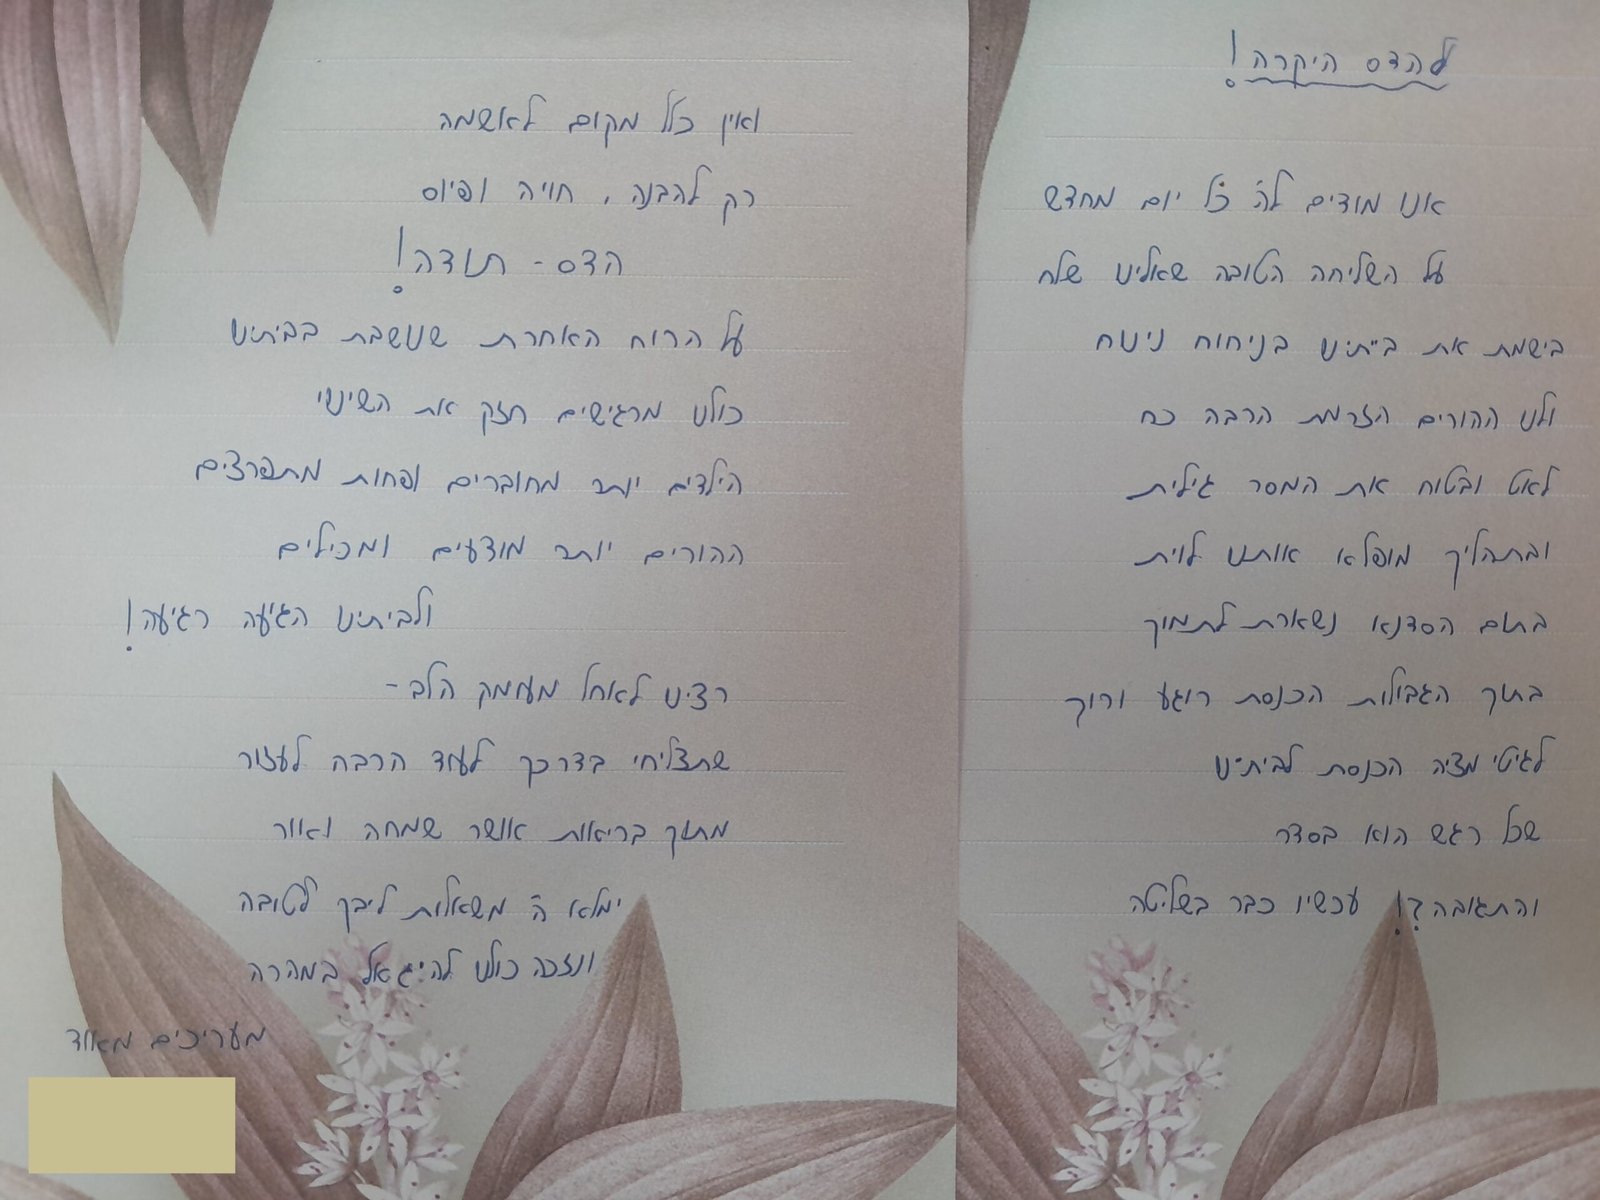 להדס היקרה!
אנו מודים לה' כל יום מחדש
על השליחה הטובה שאלינו שלח
בישמת את ביתינו בניחוח נינוח
ולנו ההורים הזרמת הרבה כח
לאט ובטוח את המסר גילית
ובתהליך מופלא אותנו לוית
בתום הסדנא נשארת לתמוך
בתוך הגבולות הכנסת רוגע ורוך
לגיטימציה הכנסת לביתינו
שכל רגש הוא בסדר
והתגובה?! עכשיו כבר בשליטה
ואין כלל מקום לאשמה
רק להבנה, חויה ופיוס
הדס - תודה!
על הרוח האחרת שנושבת בביתינו
כולנו מרגישים חזק את השינוי
הילדים יותר מחוברים ופחות מתפרצים
ההורים יותר מודעים ומכילים
ולביתינו הגיעה רגיעה!
רצינו לאחל מעומק הלב -
שתצליחי בדרכך לעוד הרבה לעזור
מתוך בריאות אושר שמחה ואור
ימלא ה' משאלות ליבך לטובה
ונזכה כולנו להיגאל במהרה
מעריכים מאוד